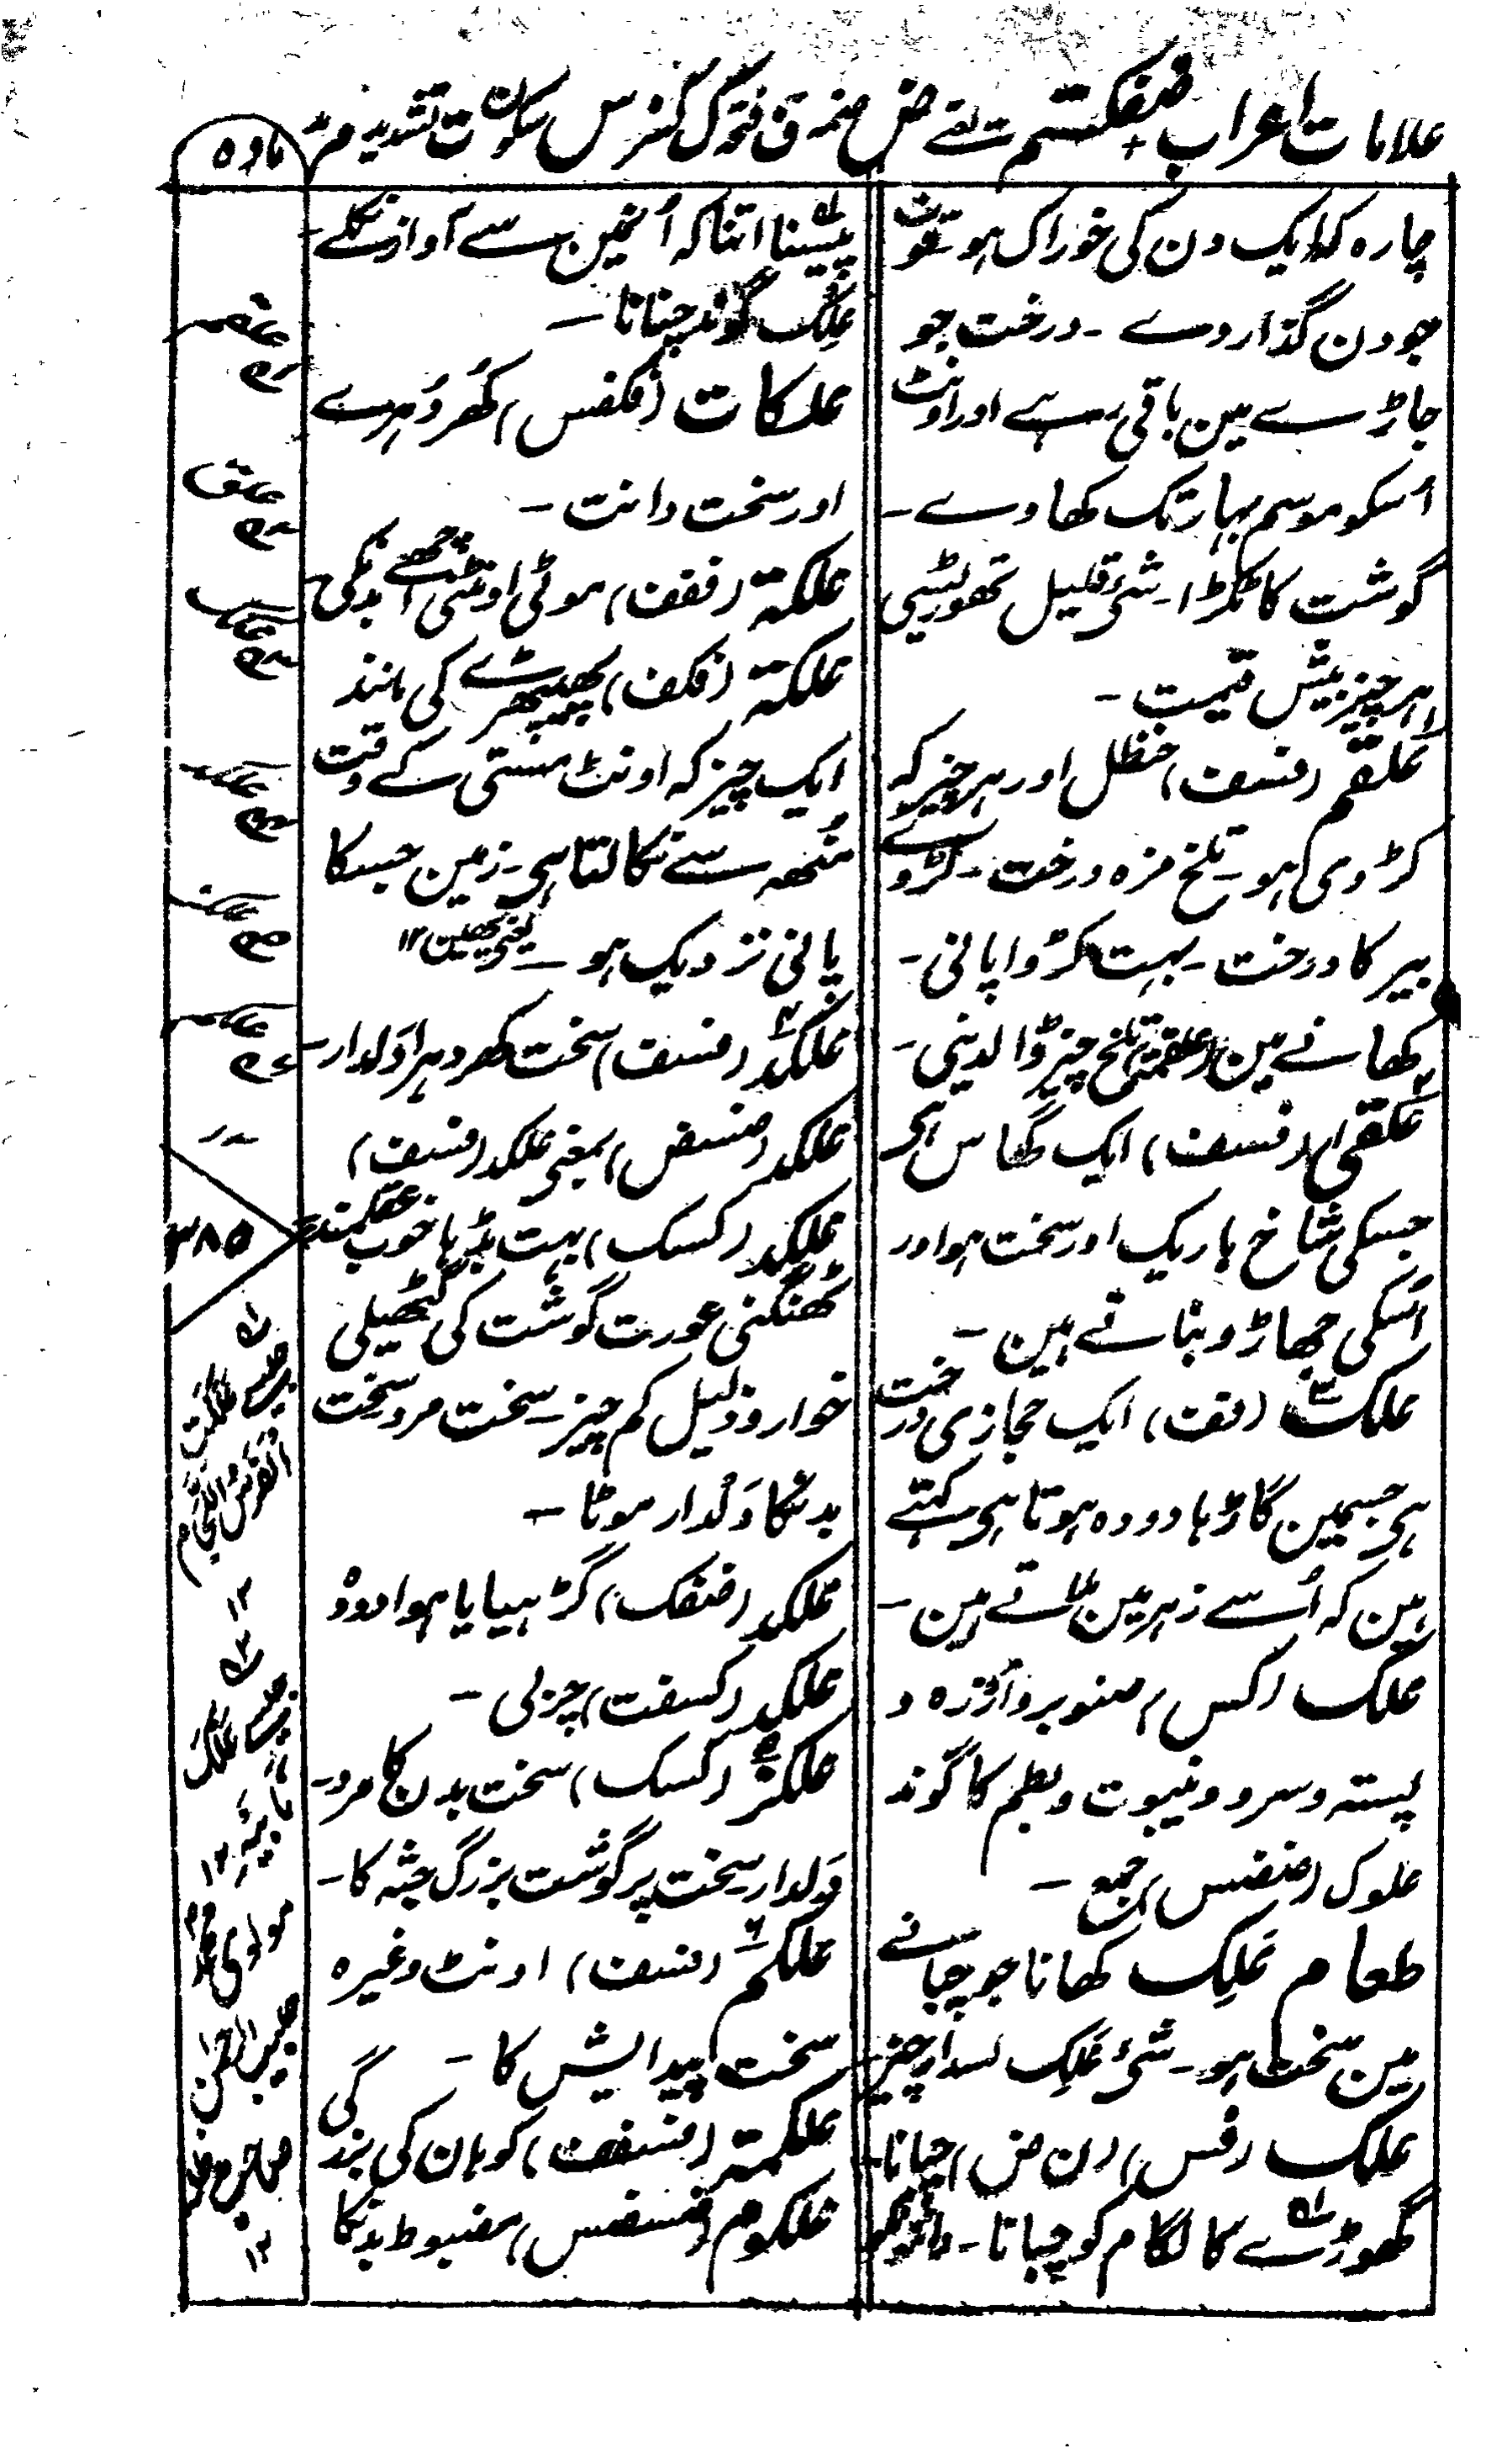 علامات اعراب ضفکتسم ت یعنے ض ضمہ ف فتحہ ک کسرہ س سکون ت تشدید م مد
مادہ
چارہ کہ ایک دن کی خوراک ہو قوت
جو دن گذار دے ۔ درخت جو
جاڑے مین باقی رہے اور اونٹ
اُسکو موسم بہار تک کھاوے ۔
گوشت کا ٹکڑا ۔ شئ قلیل تھوڑیسی
ہر چیز بیش قیمت ۔
علقم (فسف) حنظل اور ہر چیز کہ
کڑوی ہو ۔ تلخ مزہ درخت ۔ کڑوے
بیر کا درخت ۔ بہت کڑوا پانی ۔
کھانے مین (علقمۃ) تلخ چیز ڈالدینی ۔
علقیٰ (فسف) ایک گھاس ہی
جسکی شاخ باریک اور سخت ہو اور
اُسکی جھاڑو بناتے ہین ۔
علک (فف) ایک حجازی درخت
ہی جسمین گاڑہا دودہ ہوتا ہی کہتے
ہین کہ اُسے زہر مین ملاتے ہین ۔
علک (کس) صنوبر و ارزہ و
پستہ و سرو و ینبوت و بطم کا گوند
علوک (ضضس) جمع ۔
طعام عَلِک کھانا جو چبانے
مین سخت ہو ۔ شئ عَلِک لسدار چیز
علک (فس) (ن ض) چبانا ۔
گھوڑے کا لگام کو چبانا ۔
پیسنا اتنا کہ اُنمین سے آواز نکلے ۔
عِلک گوند چبانا ۔
علکات (فکفس) کُھردُہرے
اور سخت دانت ۔
علکۃ (ففف) موٹی اونٹنی اچھے بدنکی
علکۃ (فکف) پھیپھڑے کی مانند
ایک چیز کہ اونٹ مستی کے وقت
مُنھہ سے نکالتا ہی ۔ زمین جسکا
پانی نزدیک ہو ۔
علکد (فسف) سخت کھردہرا دَلدار ۔
علکد (ضسض) بمعنی علکد (فسف)
علکد (کسک) بہت بڈہا خوب عقلمند
ٹھنگنی عورت گوشت کی گٹھیلی
خوار و ذلیل کم چیز ۔ سخت مرد سخت
بدنکا دَلدار موٹا ۔
علکد (ضفک) گڑہیایا ہوا دودہ
علکد (کسفت) چربی ۔
علکز (کسک) سخت بدن کا مرد ۔
دَلدار سخت پر گوشت بزرگ جثہ کا ۔
علکم (فسف) اونٹ وغیرہ
سخت پیدایش کا ۔
علکمۃ (فسفف) کوہان کی بزرگی
علکوم (ضسضس) مضبوط بدنکا
علقم
علق
علک
علکد
علکز
علکم
۳۸۵
مولوی محمد
حبیب الرحمٰن
صاحب
۱۲